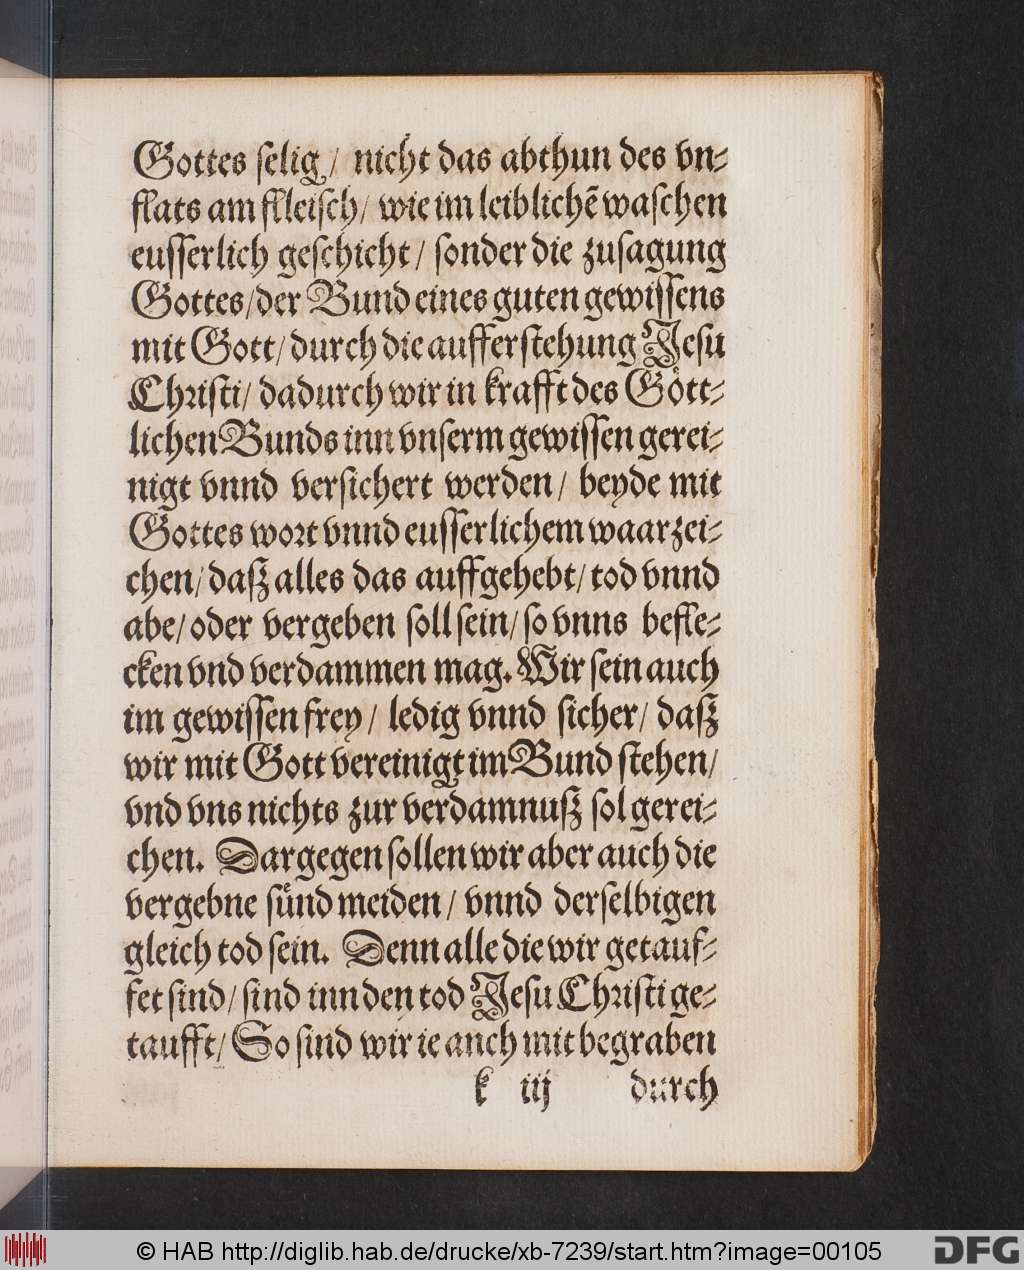 Gottes selig / nicht das abthun des vn⸗
flats am flleisch / wie im leiblichẽ waschen
eusserlich geschicht / sonder die zusagung
Gottes / der Bund eines guten gewissens
mit Gott / durch die aufferstehung Jesu
Christi / dadurch wir in krafft des Goͤtt⸗
lichen Bunds inn vnserm gewissen gerei⸗
nigt vnnd versichert werden / beyde mit
Gottes wort vnnd eusserlichem waarzei⸗
chen / daß alles das auffgehebt / tod vnnd
abe / oder vergeben soll sein / so vnns befle⸗
cken vnd verdammen mag. Wir sein auch
im gewissen frey / ledig vnnd sicher / daß
wir mit Gott vereinigt im Bund stehen /
vnd vns nichts zur verdamnuß sol gerei⸗
chen. Dargegen sollen wir aber auch die
vergebne suͤnd meiden / vnnd derselbigen
gleich tod sein. Denn alle die wir getauf⸗
fet sind / sind inn den tod Jesu Christi ge⸗
taufft / So sind wir ie anch mit begraben
k iij durch
© HAB http://diglib.hab.de/drucke/xb-7239/start.htm?image=00105
DFG